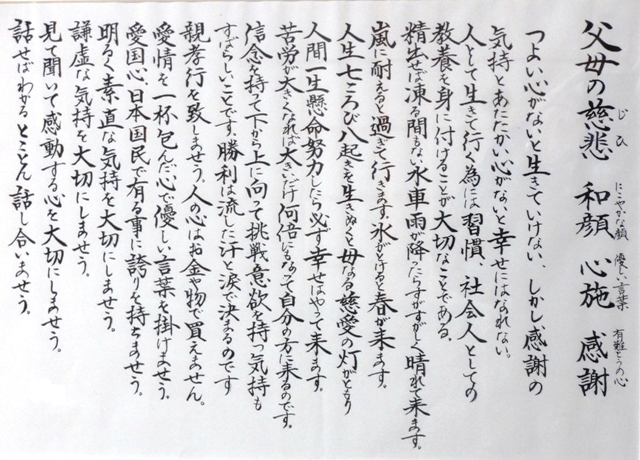 じひ にこやかな顔 優しい言葉 有難とうの心
父母の慈悲 和顔 心施 感謝
つよい心がないと生きていけない、しかし感謝の
気持とあたたかい心がないと幸せにはなれない。
人として生きて行く為には習慣、社会人としての
教養を身に付けることが大切なことである。
精出せば凍る間もない水車雨が降たらすがすがしく晴れて来ます。
嵐に耐えると過ぎて行きます。氷がとけると春が来ます。
人生七ころび八起きを生きぬくと母なる慈愛の灯がともり
人間一生懸命努力したら必ず幸せはやって来ます。
苦労が大きくなれば大きいだけ何倍にもなって自分の方に来るのです。
信念を持って下から上に向って挑戦意欲を持つ気持も
すばらしいことです。勝利は流した汗と涙で決まるのです
親孝行を致しませう。人の心はお金や物で買えません。
愛情を一杯包んだ心で優しい言葉を掛けませう。
愛国心、日本国民で有る事に誇りを持ちませう。
明るく素直な気持を大切にしませう。
謙虚な気持を大切にしませう。
見て聞いて感動する心を大切にしませう。
話せばわかるとことん話し合いませう。